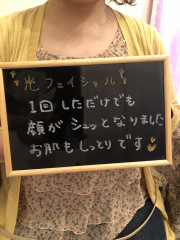 光フェイシャル
1回しただけでも
顔がシュッとなりました
お肌もしっとりです